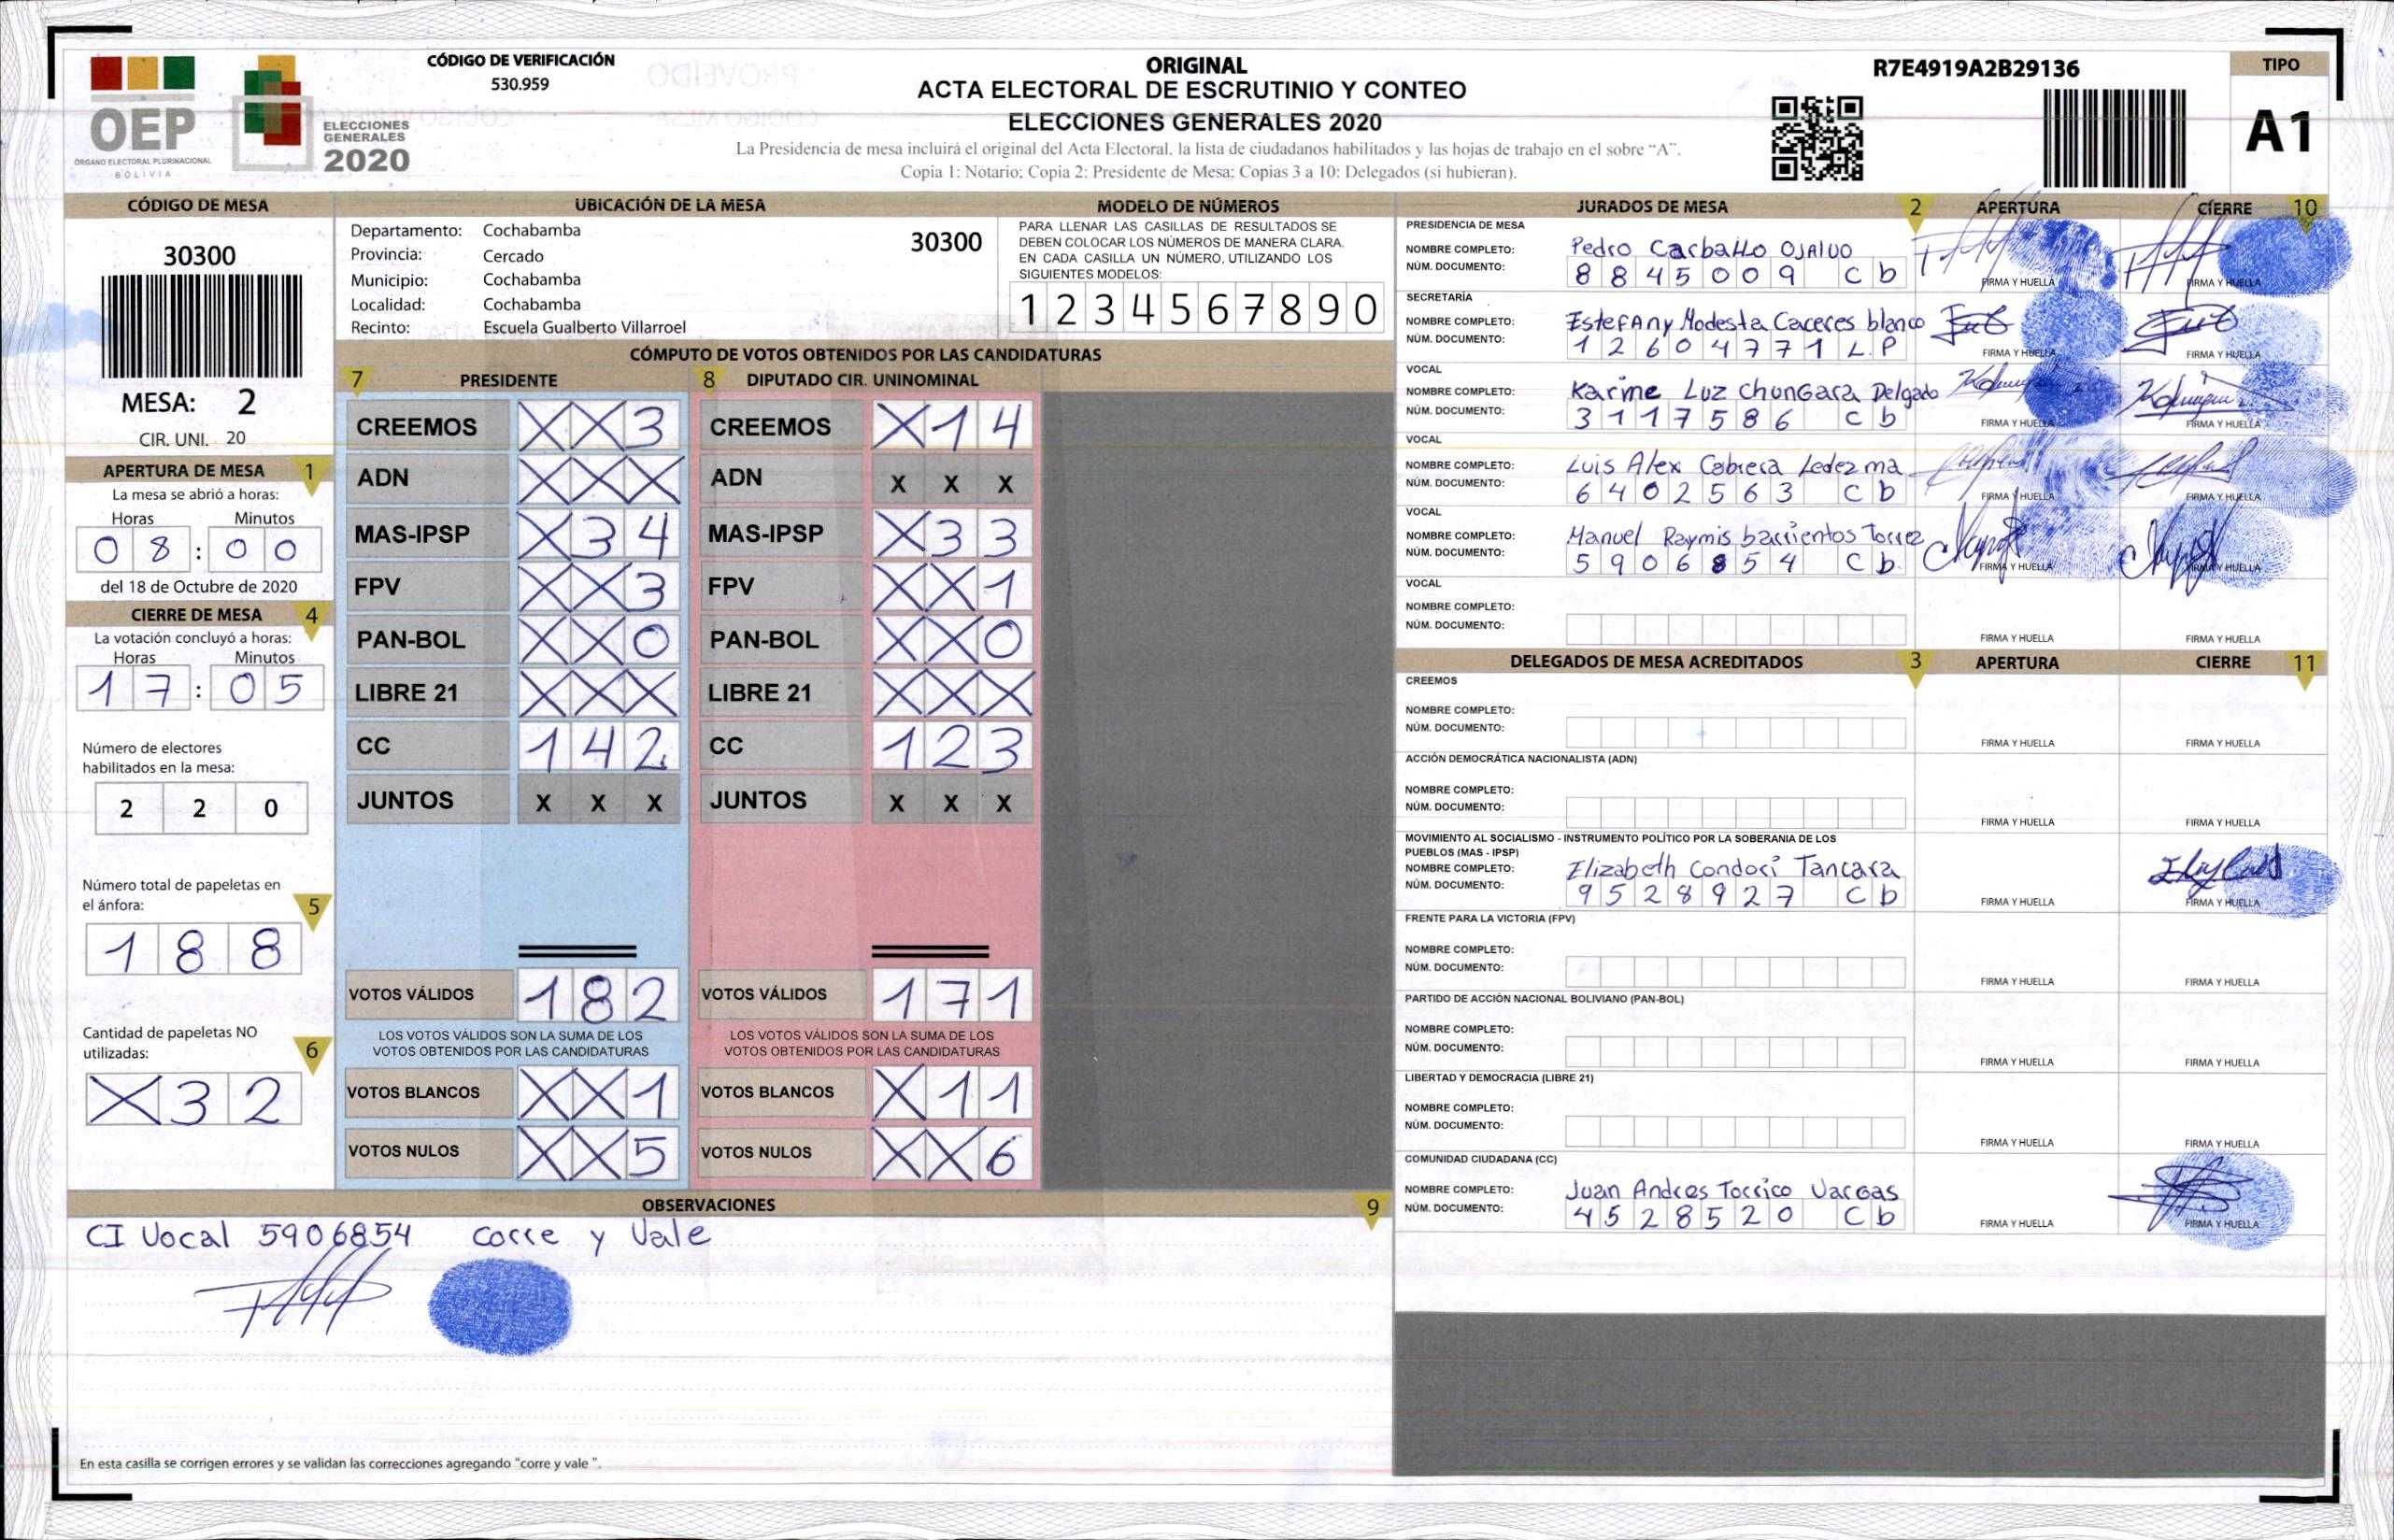 OEP
ÓRGANO ELECTORAL PLURINACIONAL
BOLIVIA
ELECCIONES
GENERALES
2020
CÓDIGO DE VERIFICACIÓN
530.959
ORIGINAL
ACTA ELECTORAL DE ESCRUTINIO Y CONTEO
ELECCIONES GENERALES 2020
La Presidencia de mesa incluirá el original del Acta Electoral, la lista de ciudadanos habilitados y las hojas de trabajo en el sobre “A”.
Copia 1: Notario; Copia 2: Presidente de Mesa; Copias 3 a 10: Delegados (si hubieran).
R7E4919A2B29136
TIPO
A1
CÓDIGO DE MESA
30300
MESA: 2
CIR. UNI. 20
APERTURA DE MESA 1
La mesa se abrió a horas:
Horas Minutos
08:00
del 18 de Octubre de 2020
CIERRE DE MESA 4
La votación concluyó a horas:
Horas Minutos
17:05
Número de electores
habilitados en la mesa:
2 2 0
Número total de papeletas en
el ánfora: 5
1 8 8
Cantidad de papeletas NO
utilizadas: 6
X 3 2
UBICACIÓN DE LA MESA
Departamento: Cochabamba 30300
Provincia: Cercado
Municipio: Cochabamba
Localidad: Cochabamba
Recinto: Escuela Gualberto Villarroel
MODELO DE NÚMEROS
PARA LLENAR LAS CASILLAS DE RESULTADOS SE
DEBEN COLOCAR LOS NÚMEROS DE MANERA CLARA.
EN CADA CASILLA UN NÚMERO, UTILIZANDO LOS
SIGUIENTES MODELOS:
1 2 3 4 5 6 7 8 9 0
CÓMPUTO DE VOTOS OBTENIDOS POR LAS CANDIDATURAS
7 PRESIDENTE 8 DIPUTADO CIR. UNINOMINAL
CREEMOS X X 3 CREEMOS X 1 4
ADN X X X ADN X X X
MAS-IPSP X 3 4 MAS-IPSP X 3 3
FPV X X 3 FPV X X 1
PAN-BOL X X 0 PAN-BOL X X 0
LIBRE 21 X X X LIBRE 21 X X X
CC 1 4 2 CC 1 2 3
JUNTOS X X X JUNTOS X X X
VOTOS VÁLIDOS 1 8 2 VOTOS VÁLIDOS 1 7 1
LOS VOTOS VÁLIDOS SON LA SUMA DE LOS LOS VOTOS VÁLIDOS SON LA SUMA DE LOS
VOTOS OBTENIDOS POR LAS CANDIDATURAS VOTOS OBTENIDOS POR LAS CANDIDATURAS
VOTOS BLANCOS X X 1 VOTOS BLANCOS X 1 1
VOTOS NULOS X X 5 VOTOS NULOS X X 6
OBSERVACIONES 9
CI Vocal 5906854 corre y Vale
En esta casilla se corrigen errores y se validan las correcciones agregando “corre y vale ”.
JURADOS DE MESA 2 APERTURA CIERRE 10
PRESIDENCIA DE MESA
NOMBRE COMPLETO: Pedro Carballo OJAlVO
NÚM. DOCUMENTO: 8845009 Cb
FIRMA Y HUELLA FIRMA Y HUELLA
SECRETARÍA
NOMBRE COMPLETO: EsteFAny Modesta Caceres blanco
NÚM. DOCUMENTO: 12604771 L.P
FIRMA Y HUELLA FIRMA Y HUELLA
VOCAL
NOMBRE COMPLETO: Karime Luz Chungara Delgado
NÚM. DOCUMENTO: 3117586 Cb
FIRMA Y HUELLA FIRMA Y HUELLA
VOCAL
NOMBRE COMPLETO: Luis Alex Cabrera Ledezma
NÚM. DOCUMENTO: 6402563 Cb
FIRMA Y HUELLA FIRMA Y HUELLA
VOCAL
NOMBRE COMPLETO: Manuel Raymis barrientos Torrez
NÚM. DOCUMENTO: 5906854 Cb.
FIRMA Y HUELLA FIRMA Y HUELLA
VOCAL
NOMBRE COMPLETO:
NÚM. DOCUMENTO:
FIRMA Y HUELLA FIRMA Y HUELLA
DELEGADOS DE MESA ACREDITADOS 3 APERTURA CIERRE 11
CREEMOS
NOMBRE COMPLETO:
NÚM. DOCUMENTO:
FIRMA Y HUELLA FIRMA Y HUELLA
ACCIÓN DEMOCRÁTICA NACIONALISTA (ADN)
NOMBRE COMPLETO:
NÚM. DOCUMENTO:
FIRMA Y HUELLA FIRMA Y HUELLA
MOVIMIENTO AL SOCIALISMO - INSTRUMENTO POLÍTICO POR LA SOBERANIA DE LOS
PUEBLOS (MAS - IPSP)
NOMBRE COMPLETO: Elizabeth Condori Tancara
NÚM. DOCUMENTO: 9528927 Cb
FIRMA Y HUELLA FIRMA Y HUELLA
FRENTE PARA LA VICTORIA (FPV)
NOMBRE COMPLETO:
NÚM. DOCUMENTO:
FIRMA Y HUELLA FIRMA Y HUELLA
PARTIDO DE ACCIÓN NACIONAL BOLIVIANO (PAN-BOL)
NOMBRE COMPLETO:
NÚM. DOCUMENTO:
FIRMA Y HUELLA FIRMA Y HUELLA
LIBERTAD Y DEMOCRACIA (LIBRE 21)
NOMBRE COMPLETO:
NÚM. DOCUMENTO:
FIRMA Y HUELLA FIRMA Y HUELLA
COMUNIDAD CIUDADANA (CC)
NOMBRE COMPLETO: Juan Andres Torrico Vargas
NÚM. DOCUMENTO: 4528520 Cb
FIRMA Y HUELLA FIRMA Y HUELLA